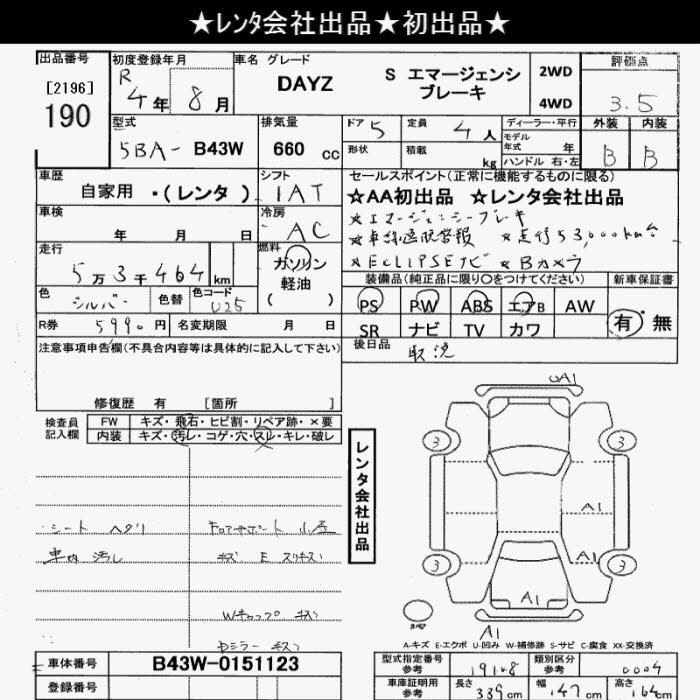 ★レンタ会社出品★初出品★
出品番号
[2196]
190
初度登録年月
R
4年 8月
車名 グレード
DAYZ
S エマージェンシ
ブレーキ
2WD
4WD
評価点
3.5
型式
5BA- B43W
排気量
660 cc
ドア 5
定員 4人
形状
積載 kg
ディーラー・平行
モデル
年式 年
ハンドル 右・左
外装 内装
B B
車歴
自家用 ・(レンタ )
シフト
IAT
車検
年 月 日
冷房
AC
走行
5万3千464km
燃料
ガソリン
軽油
( )
色
シルバー
色替
色コード
R券 5990円
名変期限 月 日
セールスポイント(正常に機能するものに限る)
☆AA初出品 ☆レンタ会社出品
★エマージェンシーブレーキ
★車線逸脱警報 ★走行53,000km台
★ECLIPSEナビ ★Bカメラ
装備品(純正品に限り○をつけてください)
新車保証書
PS PW ABS エアB AW
SR ナビ TV カワ
有・無
後日品 取説
注意事項申告欄(不具合内容等は具体的に記入して下さい)
修復歴 有 [箇所 ]
検査員
記入欄
FW キズ・飛石・ヒビ割・リペア跡・×要
内装 キズ・汚レ・コゲ・穴・スレ・キレ・破レ
シート ヘタリ
車内 汚レ
小
キズ E スリキズ
Wキャップ キズ
Dミラー キズ
レンタ会社出品
UA1
3
3
3
3
A1
A1
A1
A1
スペア
A-キズ E-エクボ U-凹み W-補修跡 S-サビ C-腐食 XX-交換済
車体番号 B43W-0151123
登録番号
型式指定番号
参考
19108
類別区分
参考
0004
車庫証明用
参考
長さ 339cm
幅 147cm
高さ 164cm